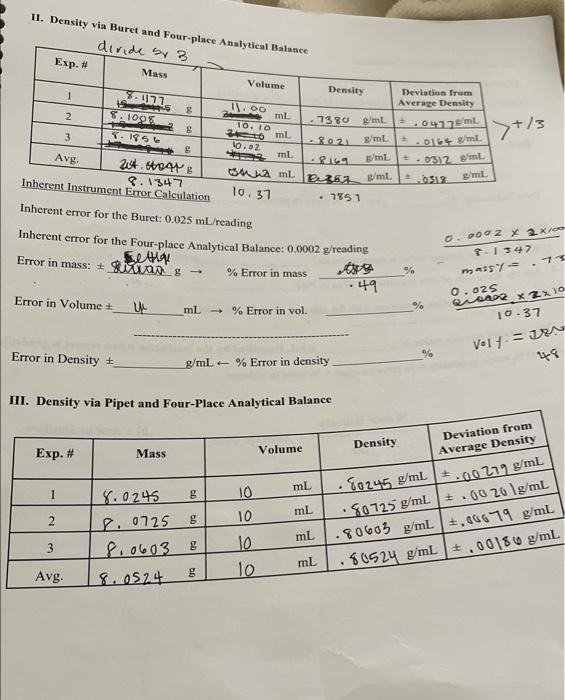 II. Density via Buret and Four-place Analytical Balance
divide by 3
Exp. # Mass Volume Density Deviation from Average Density
1 8.1177 g 11.00 mL .7380 g/mL ± .0477 g/mL
2 8.1008 g 10.10 mL .8021 g/mL ± .0164 g/mL
>+/3
3 8.1856 g 10.02 mL .8169 g/mL ± .0312 g/mL
Avg. g mL g/mL ± .0318 g/mL
8.1347 10.37 .7857
Inherent Instrument Error Calculation
Inherent error for the Buret: 0.025 mL/reading
Inherent error for the Four-place Analytical Balance: 0.0002 g/reading
0.0002 x 2x100
8.1347
mass % =
Error in mass: ± g → % Error in mass .49 %
0.025 x 2x10
10.37
Error in Volume ± mL → % Error in vol. %
vol %. =
48
Error in Density ± g/mL ← % Error in density %
III. Density via Pipet and Four-Place Analytical Balance
Exp. # Mass Volume Density Deviation from Average Density
1 8.0245 g 10 mL .80245 g/mL ± .00279 g/mL
2 8.0725 g 10 mL .80725 g/mL ± .00201 g/mL
3 8.0603 g 10 mL .80603 g/mL ± .00079 g/mL
Avg. 8.0524 g 10 mL .80524 g/mL ± .00186 g/mL